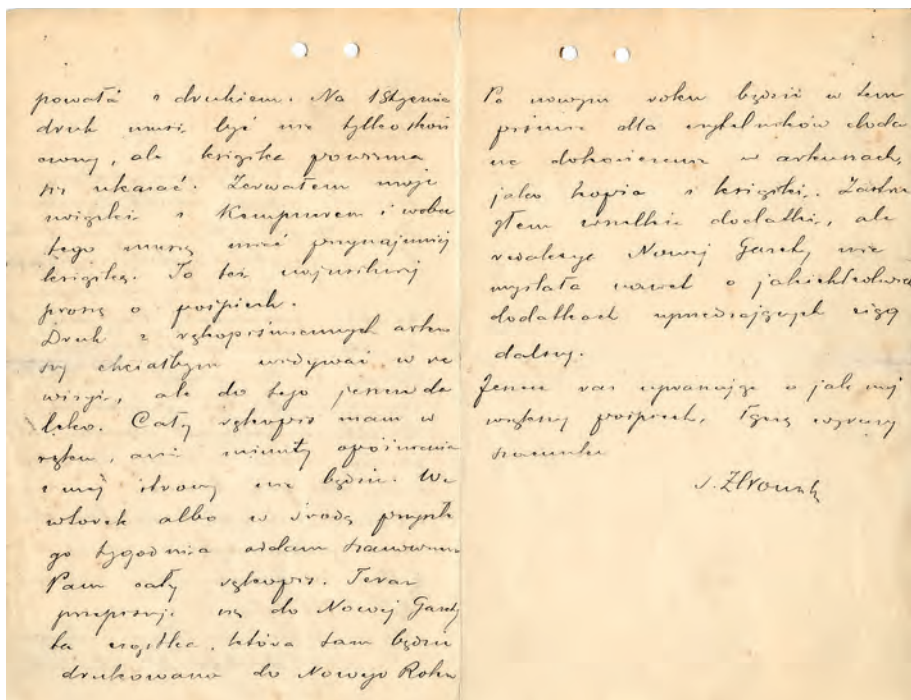 powała z drukiem. Na 1 Stycznia
druk musi być nie tylko skoń
czony, ale książka powinna
się ukazać. Zerwałem moje
związki z Kempnerem i wobec
tego muszę mieć przynajmniej
książkę. To też najusilniej
proszę o pośpiech.
Druk z rękopiśmiennych arku
szy chciałbym widywać w re
wizyi, ale do tego jeszcze da
leko. Cały rękopis mam w
ręku, ani minuty opóźnienia
z mej strony nie będzie. We
wtorek albo w środę przyszłe
go tygodnia oddam szanownym
Panom cały rękopis. Teraz
przepisuje się do Nowej Gazety
ta cząstka, która tam będzie
drukowana do Nowego Roku
Po nowym roku będzie w tem
piśmie dla czytelników doda
ne dokończenie w arkuszach,
jako kopia z książki. Zastrze
głem wszelkie dodatki, ale
redakcya Nowej Gazety nie
myślała nawet o jakichkolwiek
dodatkach uprzedzających ciąg
dalszy.
Jeszcze raz upraszając o jak naj
większy pośpiech, łączę wyrazy
szacunku
S. Żeromski